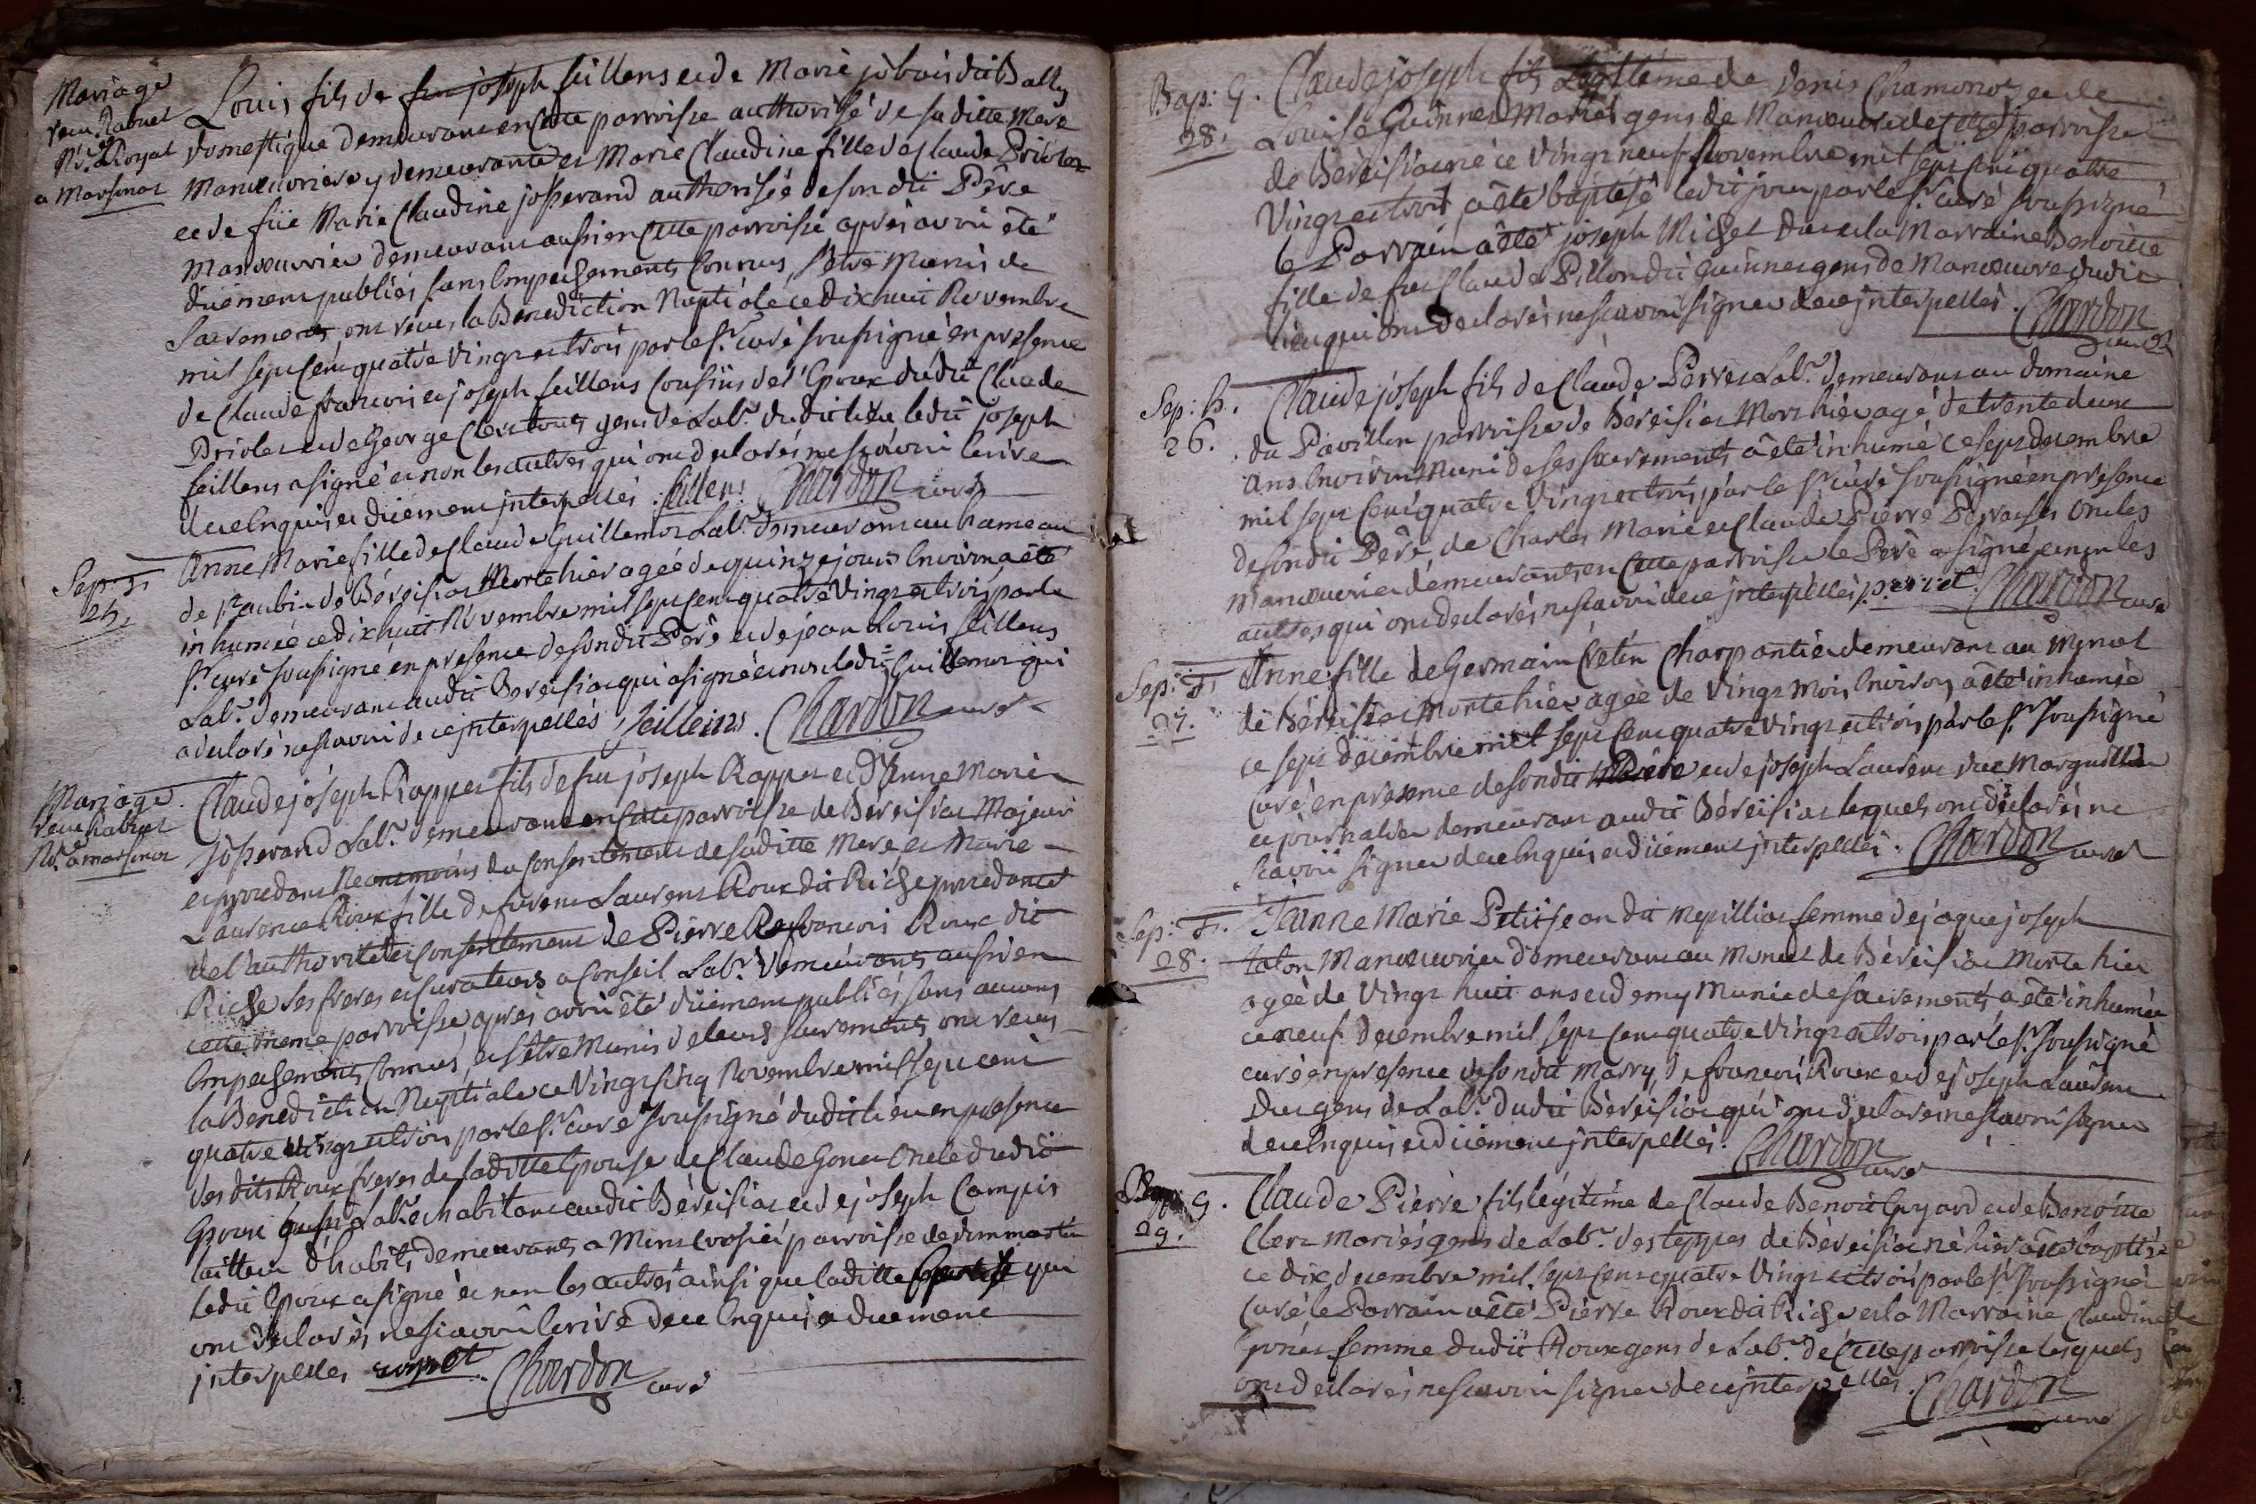 Mariage
Louis fils de feu joseph seillens et de Marie
domestique demeurant en cette parroisse authorisé de sa ditte Mere
Manoeuvriere y demeurante et Marie Claudine fille de Claude Briolet
et de füe Marie Claudine josserand authorisée de son dit Pere
Manoeuvrier demeurant aussi en cette parroisse apres avoir été
düement publiés sans Empechements Connus, s'etre Munis de
Sacrements, ont recus la Benediction Nuptiale ce dix huit Novembre
mil sept cent quatre vingt et trois par le sr. curé soussigné en presence
de Claude francois et joseph seillens Cousins de l'Epoux dudit Claude
Briolet et de George Clerc tous gens de Labr. dudit lieu ledit joseph
seillens a signé et non les autres qui ont declarés ne scavoir Ecrire
de ce Enquis et düement jnterpellés. seillens Chardon curé
Sep: f.
25.
Anne Marie fille de Claude Guillemot Labr. demeurant au hameau
de st. aubin de Béreisiat Morte hier agée de quinze jours Environ a été
inhumée ce dix huit Novembre mil sept cent quatre vingt et trois par le
sr. curé soussigné en presence de son dit Pere et de jean Louis seillens
Labr. demeurant audit Bereisiat qui a signé et non ledit Guillemot qui
a declaré ne scavoir de ce jnterpellés seillens. Chardon curé
Mariage
Claude joseph Rappet fils de feu joseph Rappet et d'Anne Marie
josserand Labr. demeurant en cette parroisse de Bereisiat Majeur
et procedant Neanmoins du Consentement de sa ditte Mere et Marie
Laurence Roux fille de Laurent Roux dit Riche procedante
de l'authorité et Consentement de Pierre et francois Roux dit
Riche ses freres et Curateurs a Conseil Labr. demeurants aussi en
cette meme parroisse apres avoir été düement publiés sans aucuns
Empechements Connus, et s'etre Munis de leurs sacrements ont recus
la Benediction Nuptiale ce vingt cinq Novembre mil sept cent
quatre vingt et trois par le sr. curé soussigné dudit lieu en presence
des dits Roux freres de la ditte Epouse de Claude Gonet Oncle dudit
Epoux aussi Labr. et habitant audit Béreisiat et de joseph Compin
tailleur d'habits demeurants a Mont parroisse de dommartin
ledit Epoux a signé et non les autres ainsi que la ditte Epouse qui
ont declarés ne scavoir Ecrire de ce Enquis et düement
jnterpellés rappet. Chardon curé
Bap: G.
28.
Claude joseph fils Legitieme de Denis Chamonot et de
Louise Guinnet Mariés gens de Manoeuvre de cette parroisse
de Béreisiat né ce vingt neuf Novembre mil sept cent quatre
vingt et trois, a été baptisé ledit jour par le sr. curé soussigné
le Parrain a été joseph Michel et la Marraine Benoitte
fille de feu Claude Pillon dit Guinnet gens de Manoeuvre dudit
lieu qui ont declarés ne scavoir signer de ce jnterpellés. Chardon
curé
Sep: h.
26.
Claude joseph fils de Claude Perret Labr. demeurant au domaine
du Pavillon parroisse de Béreisiat Mort hier agé de trente deux
ans Environ Muni de ses sacrements a été inhumé ce sept decembre
mil sept cent quatre vingt et trois par le sr. curé soussigné en presence
de son dit Pere, de Charles Marie et Claude Pierre Oncles
Manoeuvrier demeurants en cette parroisse le Pere a signé et non les
autres qui ont declarés ne scavoir de ce jnterpellés perret. Chardon curé
Sep: f.
27.
Anne fille de Germain Cretin Charpentier demeurant au Moncel
de Béreisiat Morte hier agée de vingt Mois Environ, a été inhumée
ce sept decembre mil sept cent quatre vingt et trois par le sr. soussigné
Curé en presence de son dit Pere et de joseph Laurent Duc Marguillier
et journalier demeurant audit Béreisiat lesquels ont déclarés ne
scavoir signer de ce Enquis et düement jnterpellés. Chardon curé
Sep: f.
28.
Jeanne Marie Petitjean dit Mepilliat femme de jaque joseph
talon Manoeuvrier demeurant au Moncel de Béreisiat Morte hier
agée de vingt huit ans et demy Munie de sacrements, a été inhumée
ce neuf decembre mil sept cent quatre vingt et trois par le sr. soussigné
curé en presence de son dit Marry, de francois Roux et de joseph Laurent
Duc gens de Labr. dudit Béreisiat qui ont declarés ne scavoir signer
de ce Enquis et düement jnterpellés. Chardon
curé
Bap: G.
29.
Claude Pierre fils legitime de Claude Benoit Guyard et de Benoitte
Clerc Mariés gens de Labr. des teppes de Béreisiat né hier a été baptisé
ce dix decembre mil sept cent quatre vingt et trois par le sr. soussigné
Curé le Parrain a été Pierre Roux dit Riche et la Marraine Claudine
Gonet femme dudit Roux gens de Labr. de cette parroisse lesquels
ont declarés ne scavoir signer de ce jnterpellés. Chardon
curé